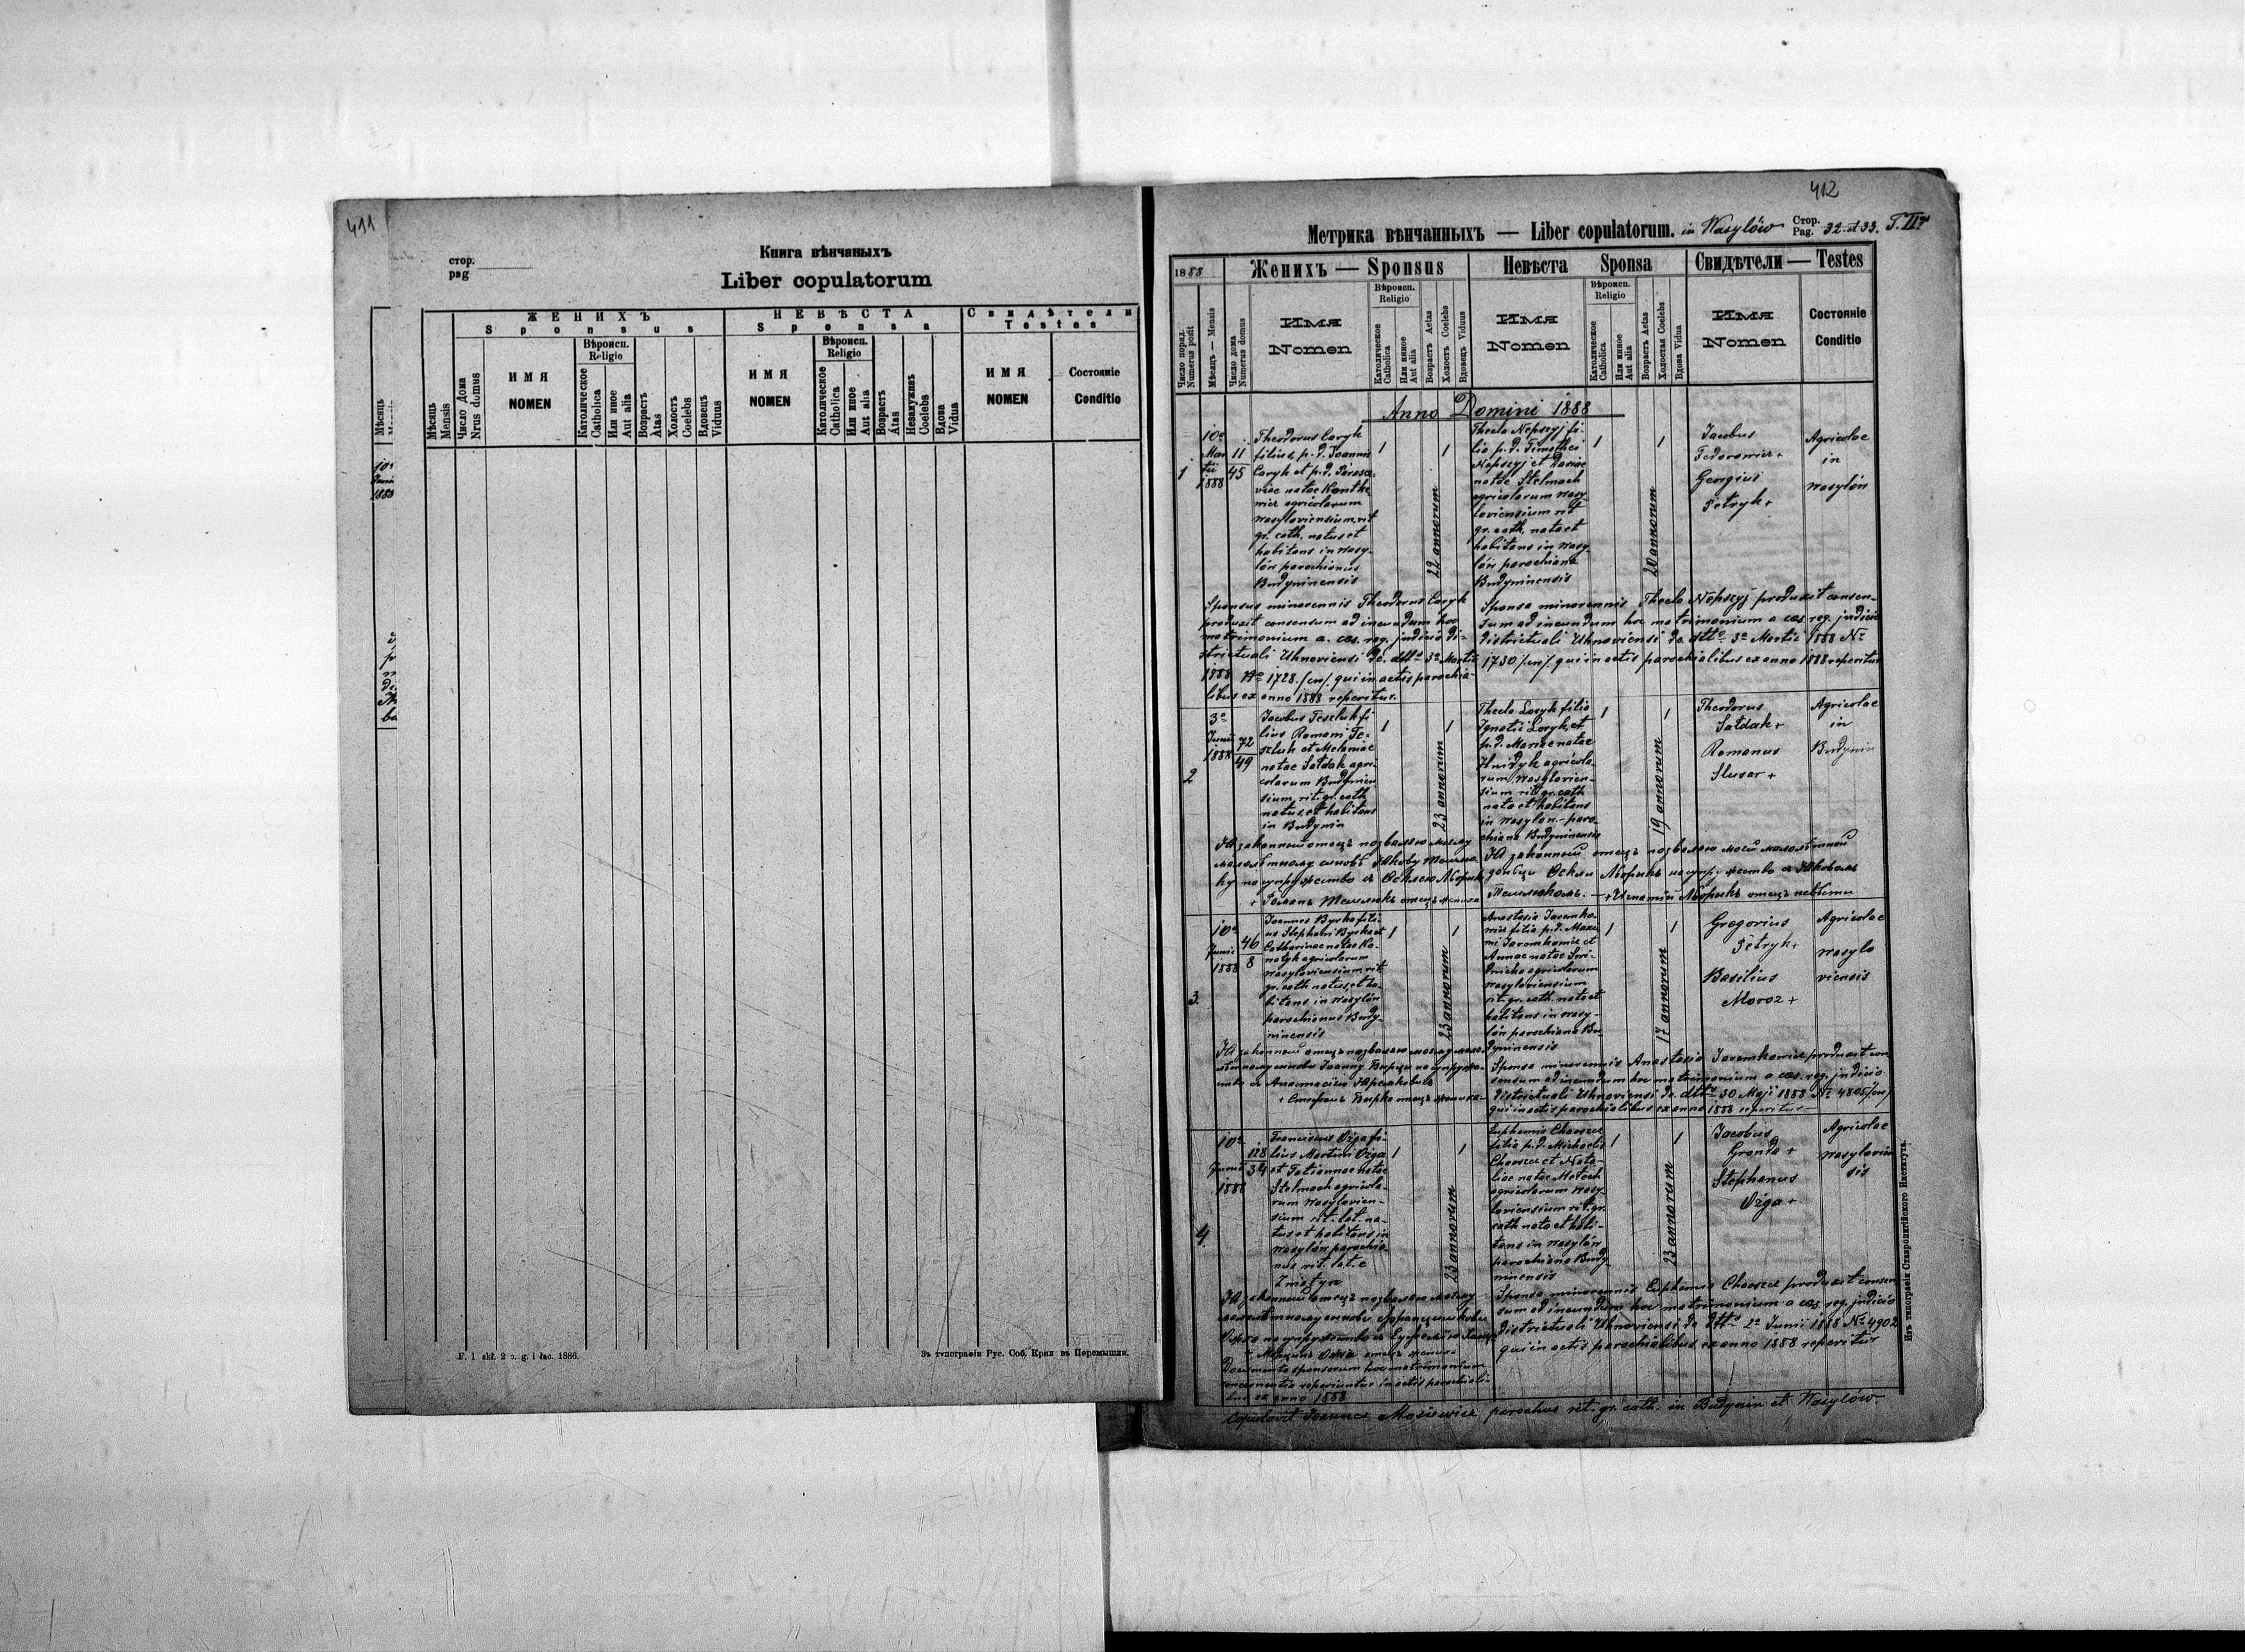 411
стор.
pag
Книга вѣнчаныхъ
Liber copulatorum
ЖЕНИХЪ
Sponsus
НЕВѢСТА
Sponsa
Свидѣтели
Testes
Мѣсяць
Мѣсяць
Mensis
Число Дома
Nrus domus
ИМЯ
NOMEN
Вѣроисп.
Religio
Католическое
Catholica
Или иное
Aut alia
Возрастъ
Ætas
Холостъ
Coelebs
Вдовецъ
Viduus
ИМЯ
NOMEN
Вѣроисп.
Religio
Католическое
Catholica
Или иное
Aut alia
Возрастъ
Ætas
Незамужняя
Coelebs
Вдова
Vidua
ИМЯ
NOMEN
Состояніе
Conditio
10a
Junii
1888
F. 1 skł. 2 o. g. i łac. 1886.
Зъ типографіи Рус. Соб. Крил. въ Перемышли.
412
Метрика вѣнчанныхъ — Liber copulatorum. in Wasylów Стор. Pag. 32 et 33. T. II
1888
Женихъ — Sponsus
Невѣста Sponsa
Свидѣтели — Testes
Число поряд.
Numerus posit
Мѣсяцъ — Mensis
Число дома
Numerus domus
Имя
Nomen
Вѣроисп.
Religio
Католическое
Catholica
Или иное
Aut alia
Возрастъ Aetas
Холостъ Coelebs
Вдовецъ Viduus
Имя
Nomen
Вѣроисп.
Religio
Католическое
Catholica
Или иное
Aut alia
Возрастъ Aetas
Холостая Coelebs
Вдова Vidua
Имя
Nomen
Состояніе
Conditio
Anno Domini 1888
1
10a
Mar
tii
1888
11
45
Theodorus Caryk
filius p. d. Joannis
Caryk et p. d. Parasce-
viae natae
agricolarum
Wasyloviensium, rit
gr. cath. natus et
habitans in Wasy-
lów parochianus
Budyninensis
1
22 annorum
1
Thecla Nepszyj fi-
lia p. d. Timothei
Nepszyj et Dariae
natae Stelmach
agricolarum Wasy-
loviensium rit
gr. cath. nata et
habitans in Wasy-
lów parochiana
Budyninensis
1
20 annorum
1
Jacobus
Fedorowicz +
Georgius
Petryk +
Agricolae
in
Wasylów
Sponsus minorennis Theodorus Caryk
produxit consensum ad ineundum hoc
matrimonium a caes. reg. judicio di-
strictuali Uhnoviensi de dtto 3a Martii
1888 No 1728 /cn/. qui in actis parochia-
libus ex anno 1888 reperitur.
Sponsa minorennis Thecla Nepszyj produxit consen-
sum ad ineundum hoc matrimonium a caes. reg. judicio
districtuali Uhnoviensi de dtto 3a Martii 1888 No
1730 /cn/. qui in actis parochialibus ex anno 1888 reperitur
2
3a
Junii
1888
72
49
Jacobus Teszluk fi-
lius Romani Te-
szluk et Melaniae
natae Sałdak agri-
colarum Budyninen-
sium, rit. gr. cath
natus, et habitans
in Budynin
1
23 annorum
1
filia
Ignatii et
p. d. Mariae natae
Hnidyk agricola-
rum Wasylovien-
sium rit. gr. cath
nata et habitans
in Wasylow - paro-
chiana Budyninensis
1
19 annorum
1
Theodorus
Sałdak +
Romanus
Slusar +
Agricolae
in
Budynin
Я законный отецъ позваляю моему
малолѣтному сыновѣ Якову
на супружество съ
+ Романъ отецъ жениха
Я законный отецъ позваляю моей малолѣтной
на супружество съ Яковомъ
отецъ невѣсты
3.
10a
Junii
1888
46
8
Joannes Byrka fili-
us Stephani Byrka et
Catharinae natae Ko-
natyk agricolarum
Wasyloviensium rit
gr. cath natus, et ha-
bitans in Wasylów
parochianus Budy-
ninensis
1
23 annorum
1
Anastasia Jaremko-
wicz filia p. d. Maxi-
mi Jaremkowicz et
Annae natae
agricolarum
Wasyloviensium
rit. gr. cath. nata et
habitans in Wasy-
lów parochiana Bu-
dyninensis
1
17 annorum
1
Gregorius
Petryk +
Basilius
Moroz +
Agricolae
Wasylo
viensis
Я законный отецъ позваляю моему мало-
лѣтному сынови Іоанну на супруже-
ство съ Анастасіею
+ Стефанъ Бырка отецъ жениха
Sponsa minorennis Anastasia Jaremkowicz produxit con-
sensum ad ineundum hoc matrimonium a caes. reg. judicio
districtuali Uhnoviensi de dtto 30 Maji 1888 No 4805 /cn/
qui in actis parochialibus ex anno 1888 reperitur
4.
10a
Junii
1888
128
34
Franciscus Ożga fi-
lius Martini Ożga
et Tatiannae natae
Stelmach agricola-
rum Wasylovien-
sium rit. lat. na-
tus et habitans in
Wasylów parochia-
nus rit. lat. e
Żniatyn
1
23 annorum
1
Euphemia
filia p. d. Michaelis
et Nata-
liae natae
agricolarum Wasy-
loviensium rit. gr.
cath nata et habi-
tans in Wasylów
parochiana Budy-
ninensis
1
23 annorum
1
Jacobus
Gronda +
Stephanus
Ożga +
Agricolae
Wasylovien
sis
Я законный отецъ позваляю моему
малолѣтному сынови
на супружество съ
отецъ жениха
Documenta sponsorum hoc matrimonium
concernentia reperiuntur in actis parochiali-
bus ex anno 1888
Sponsa minorennis Euphemia produxit consen-
sum ad ineundum hoc matrimonium a caes. reg. judicio
districtuali Uhnoviensi de dtto 2a Junii 1888 No 4902
qui in actis parochialibus ex anno 1888 reperitur
Copulavit Joannes parochus rit. gr. cath. in Budynin et Wasylów
Изъ типографіи Ставропигійского Института.